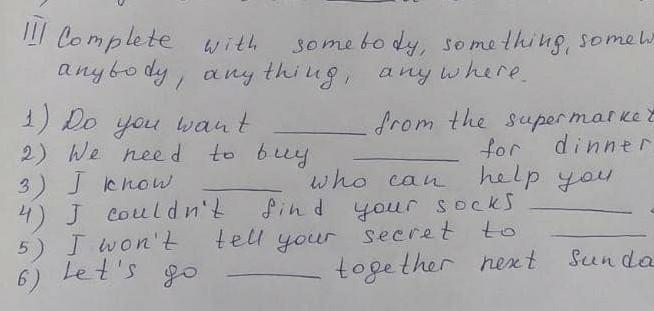 III Complete with somebody, something, somew
anybody, anything, anywhere.
1) Do you want ______ from the supermarket
2) We need to buy ______ for dinner
3) I know ______ who can help you
4) I couldn't find your socks ______.
5) I won't tell your secret to ______
6) Let's go ______ together next Sunda